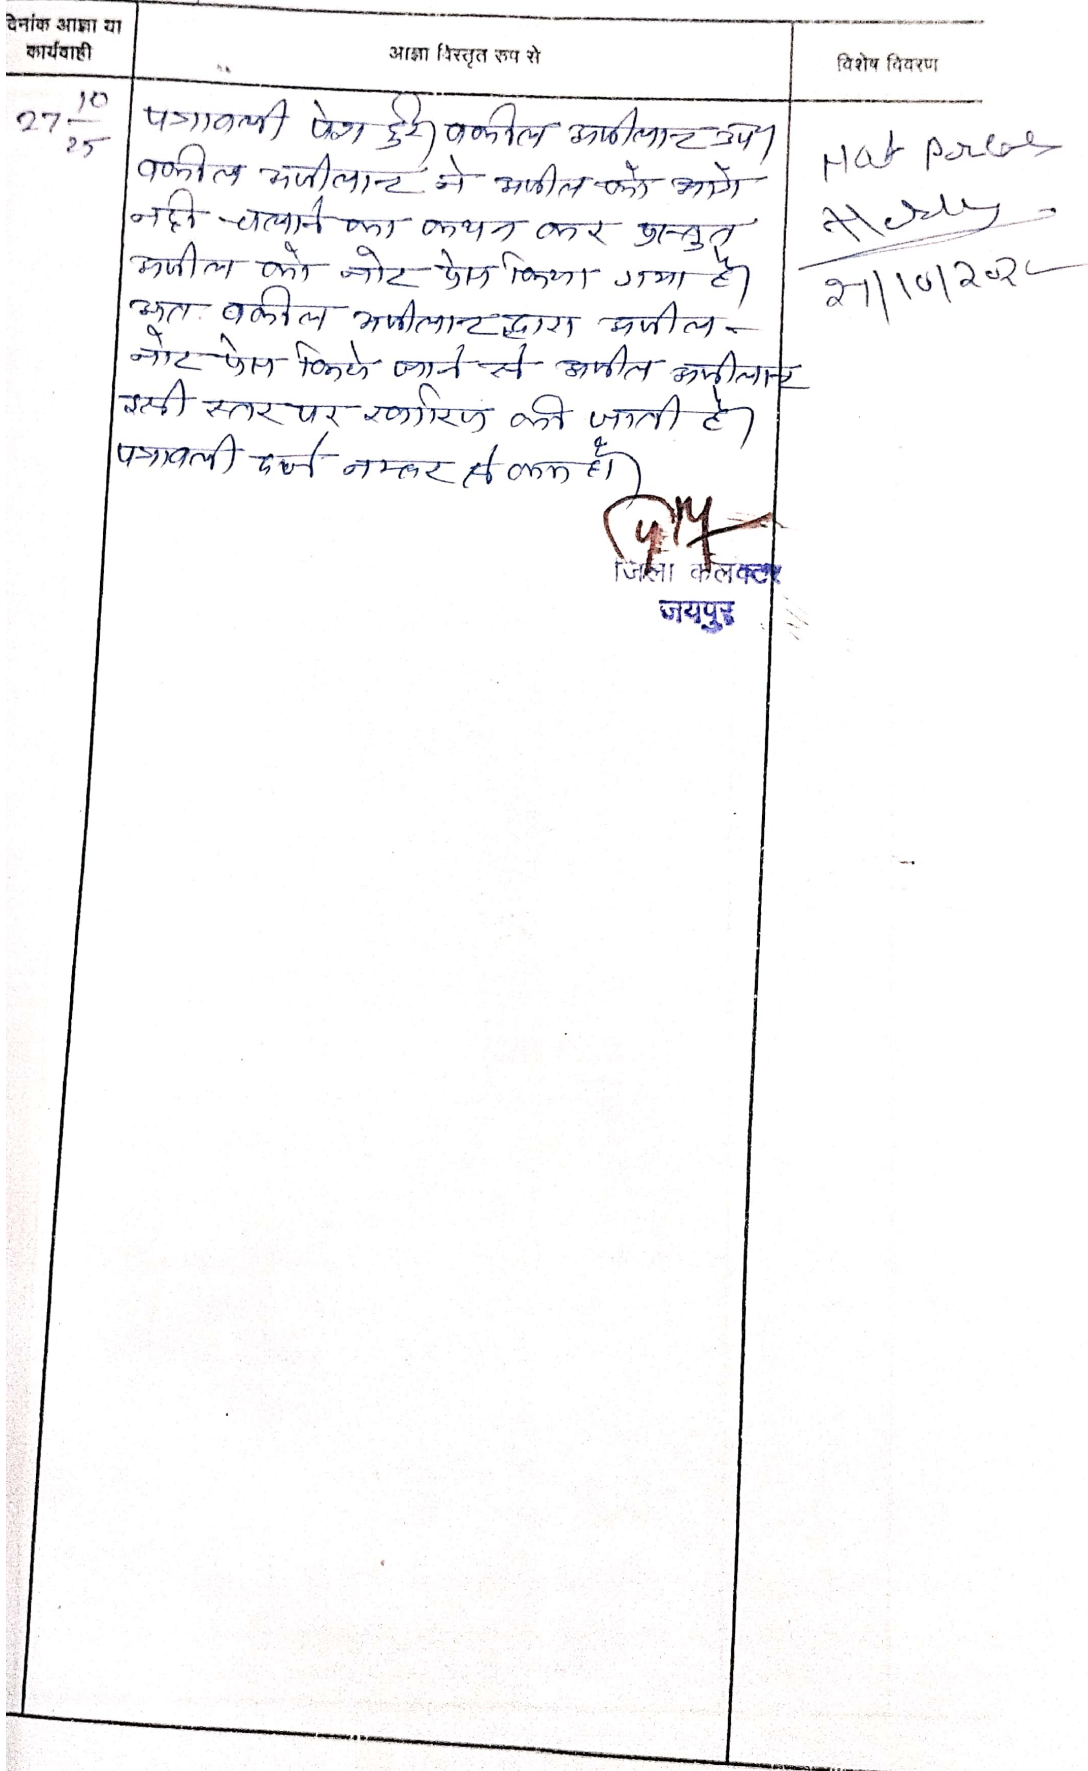 दिनांक आज्ञा या
कार्यवाही
आज्ञा विस्तृत रुप से
विशेष विवरण
27 10/25
पत्रावली पेश हुई। वकील अपीलान्ट उप।
वकील अपीलान्ट ने अपील को आगे
नही चलाने का कथन कर प्रस्तुत
अपील को नोट प्रेस किया गया है।
अतः वकील अपीलान्ट द्वारा अपील
नोट प्रेस किये जाने से अपील अपीलान्ट
इसी स्तर पर खारिज की जाती है।
पत्रावली दर्ज नम्बर से कम हो।
जिला कलक्टर
जयपुर
Not
27/10/202